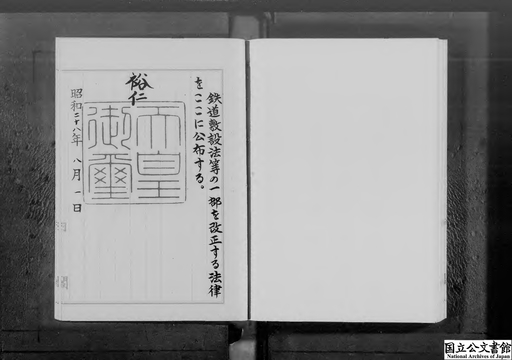 鉄道敷設法等の一部を改正する法律
をここに公布する。
裕仁
天皇
御璽
昭和二十八年八月一日
国立公文書館
National Archives of Japan